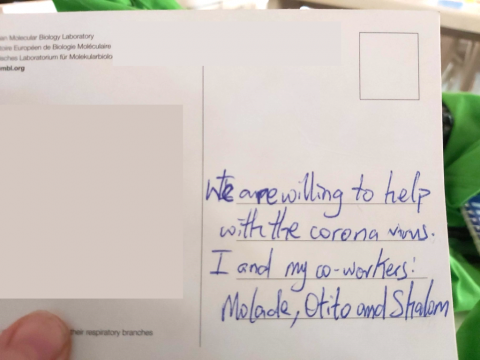 an Molecular Biology Laboratory
toire Européen de Biologie Moléculaire
isches Laboratorium für Molekularbiolo
mbl.org
We are willing to help
with the corona virus.
I and my co-workers:
Molade, Otito and Shalom
their respiratory branches